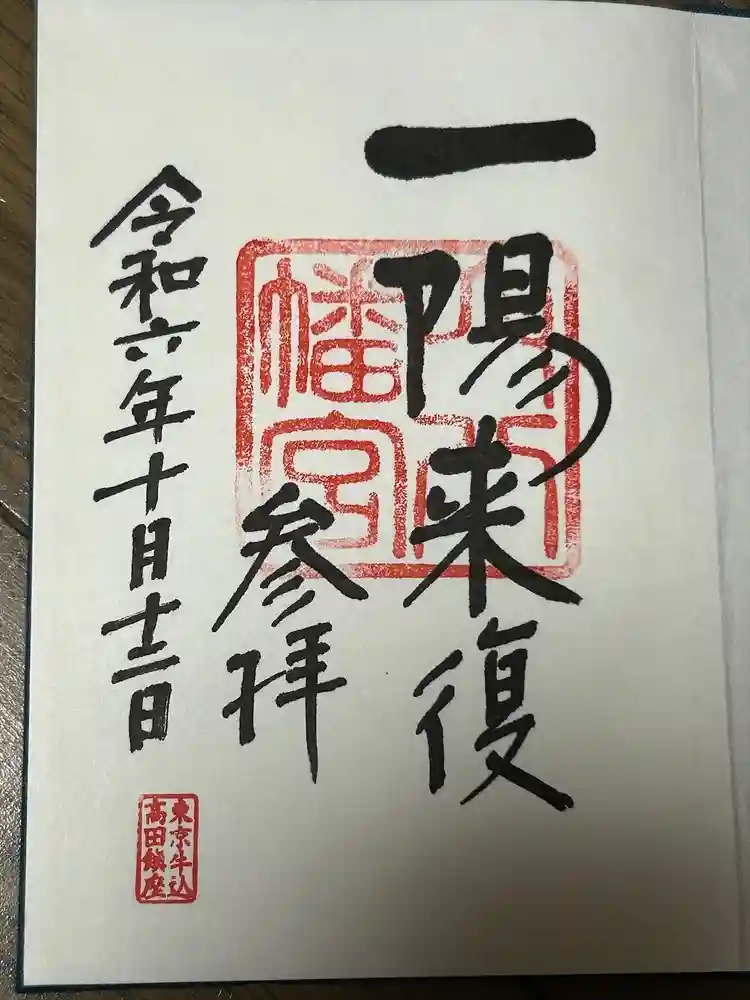 一陽来復
穴八
幡宮
参拝
令和六年十月十二日
東京牛込
高田鎭座